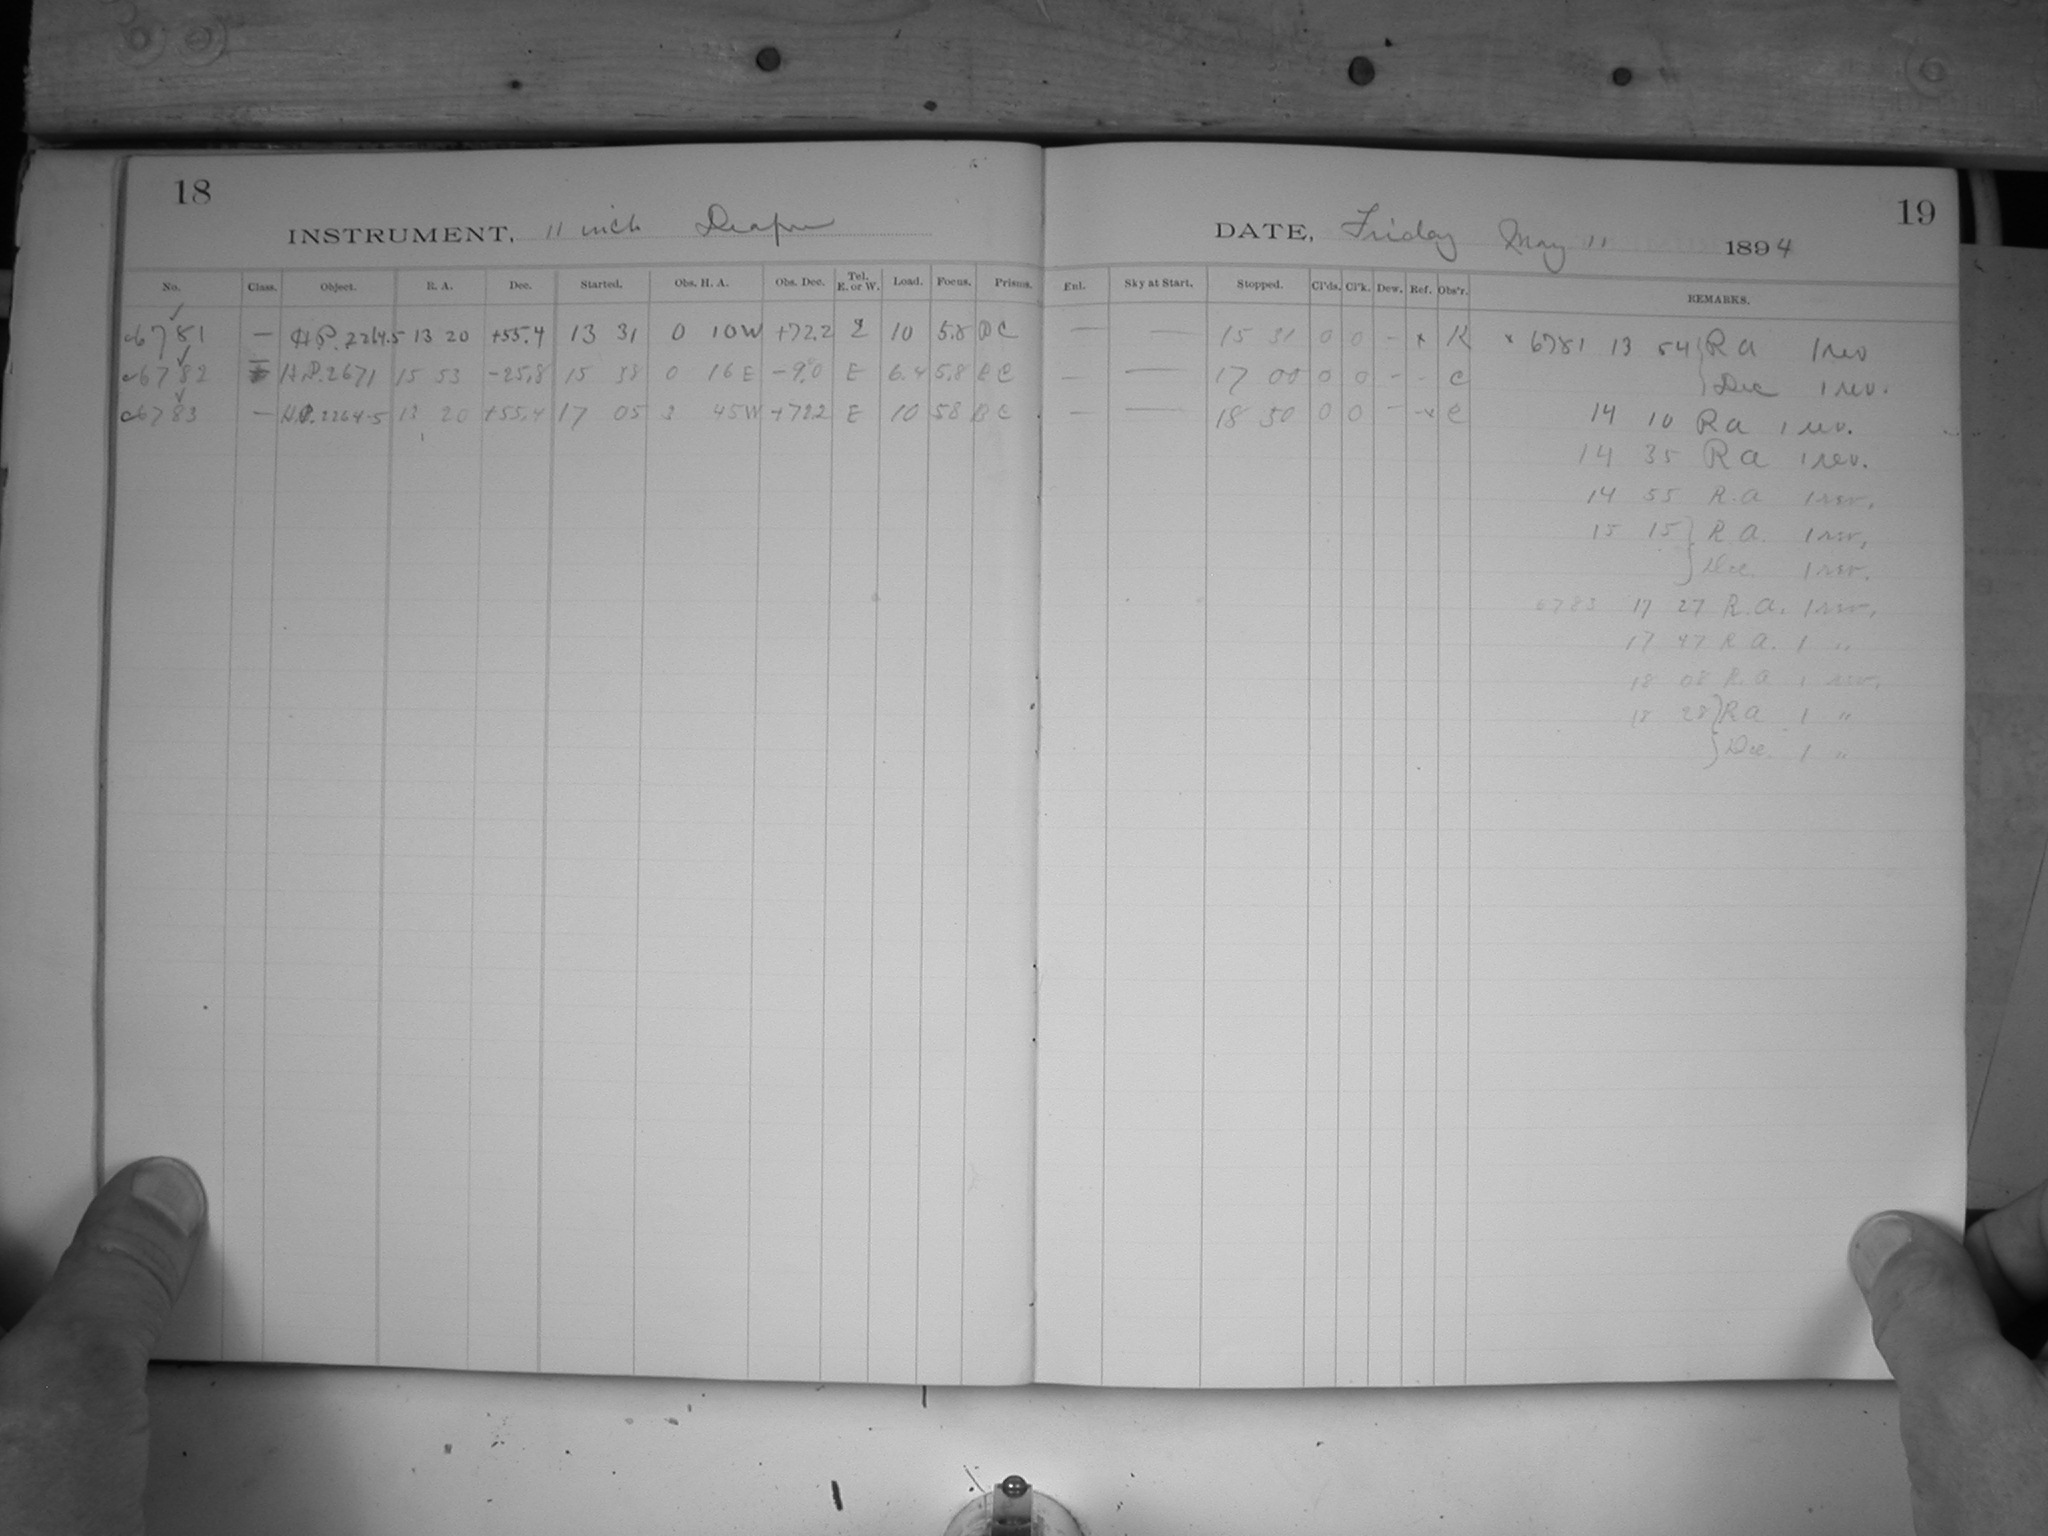 18
INSTRUMENT, 11 inch Draper
No. Class. Object. R. A. Dec. Started. Obs. H. A. Obs. Dec. Tel. E. or W. Load. Focus. Prisms.
c6781 — H.P. 2264.5 13 20 +55.4 13 31 0 10W +72.2 E 10 5.8 B C
c6782 — H.P. 2671 15 53 -25.8 15 38 0 16 E -9.0 E 6.4 5.8 B C
c6783 — H.P. 2264-5 13 20 +55.4 17 05 3 45W +72.2 E 10 58 B C
19
DATE, Friday May 11 1894
Enl. Sky at Start. Stopped. Cl'ds. Cl'k. Dew. Ref. Obs'r. REMARKS.
— — 15 31 0 0 - x K x 6781 13 54 { R a 1 rev
Dec 1 rev.
— — 17 00 0 0 - - C
— — 18 50 0 0 - -x C 14 10 R a 1 rev.
14 35 R a 1 rev.
14 55 R. a 1 rev.
15 15 } R a. 1 rev.
Dec. 1 rev.
6783 17 27 R. a. 1 rev.
17 47 R a. 1 "
18 08 R. a 1 rev.
18 28 } R a 1 "
Dec. 1 "